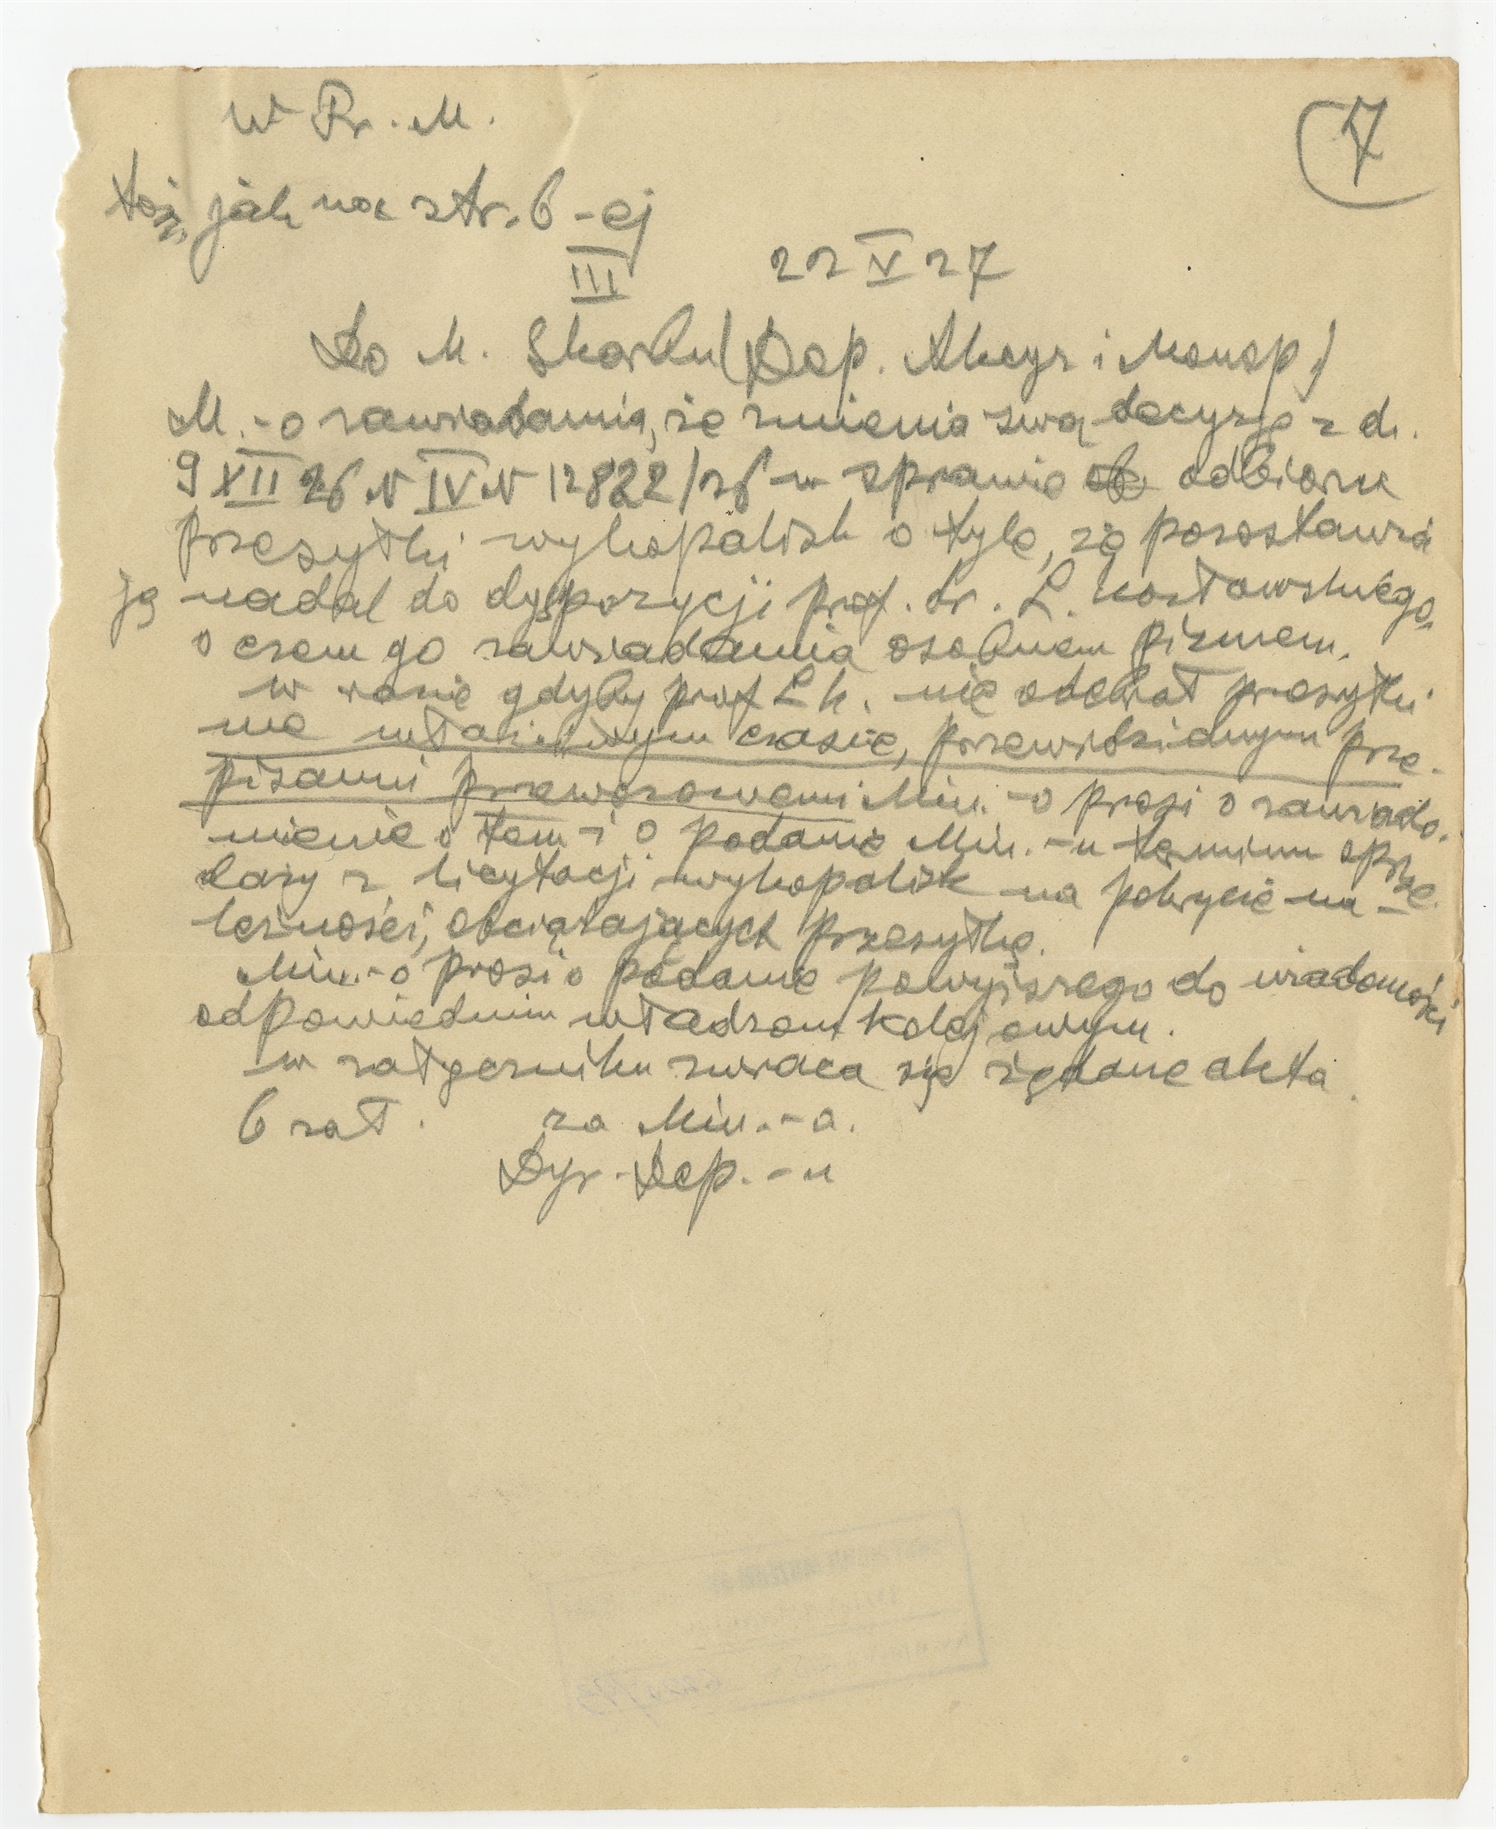 W Pr. M.
7
toż jak na str. 6-ej
III 22 V 27
Do M. Skarbu (Dep. Akcyz i Monop.)
M.-o zawiadamia, że zmienia swą decyzję z d.
9 XII 26 N IV N 12822/26 w sprawie odbioru
przesyłki wykopalisk o tyle, że pozostawia
ją nadal do dyspozycji prof. dr. L. Kozłowskiego,
o czem go zawiadamia osobnem pismem.
W razie gdyby prof L K. nie odebrał przesyłki
we właściwym czasie, przewidzianym prze-
pisami przewozowemi Min.-o prosi o zawiado-
mienie o tem i o podanie Min.-u terminu sprze-
daży z licytacji wykopalisk na pokrycie na-
leżności, obciążających przesyłkę.
Min.-o prosi o podanie powyższego do wiadomości
odpowiednim władzom kolejowym.
W załączniku zwraca się żądane akta.
6 zał. za Min.-a.
Dyr. Dep.-u